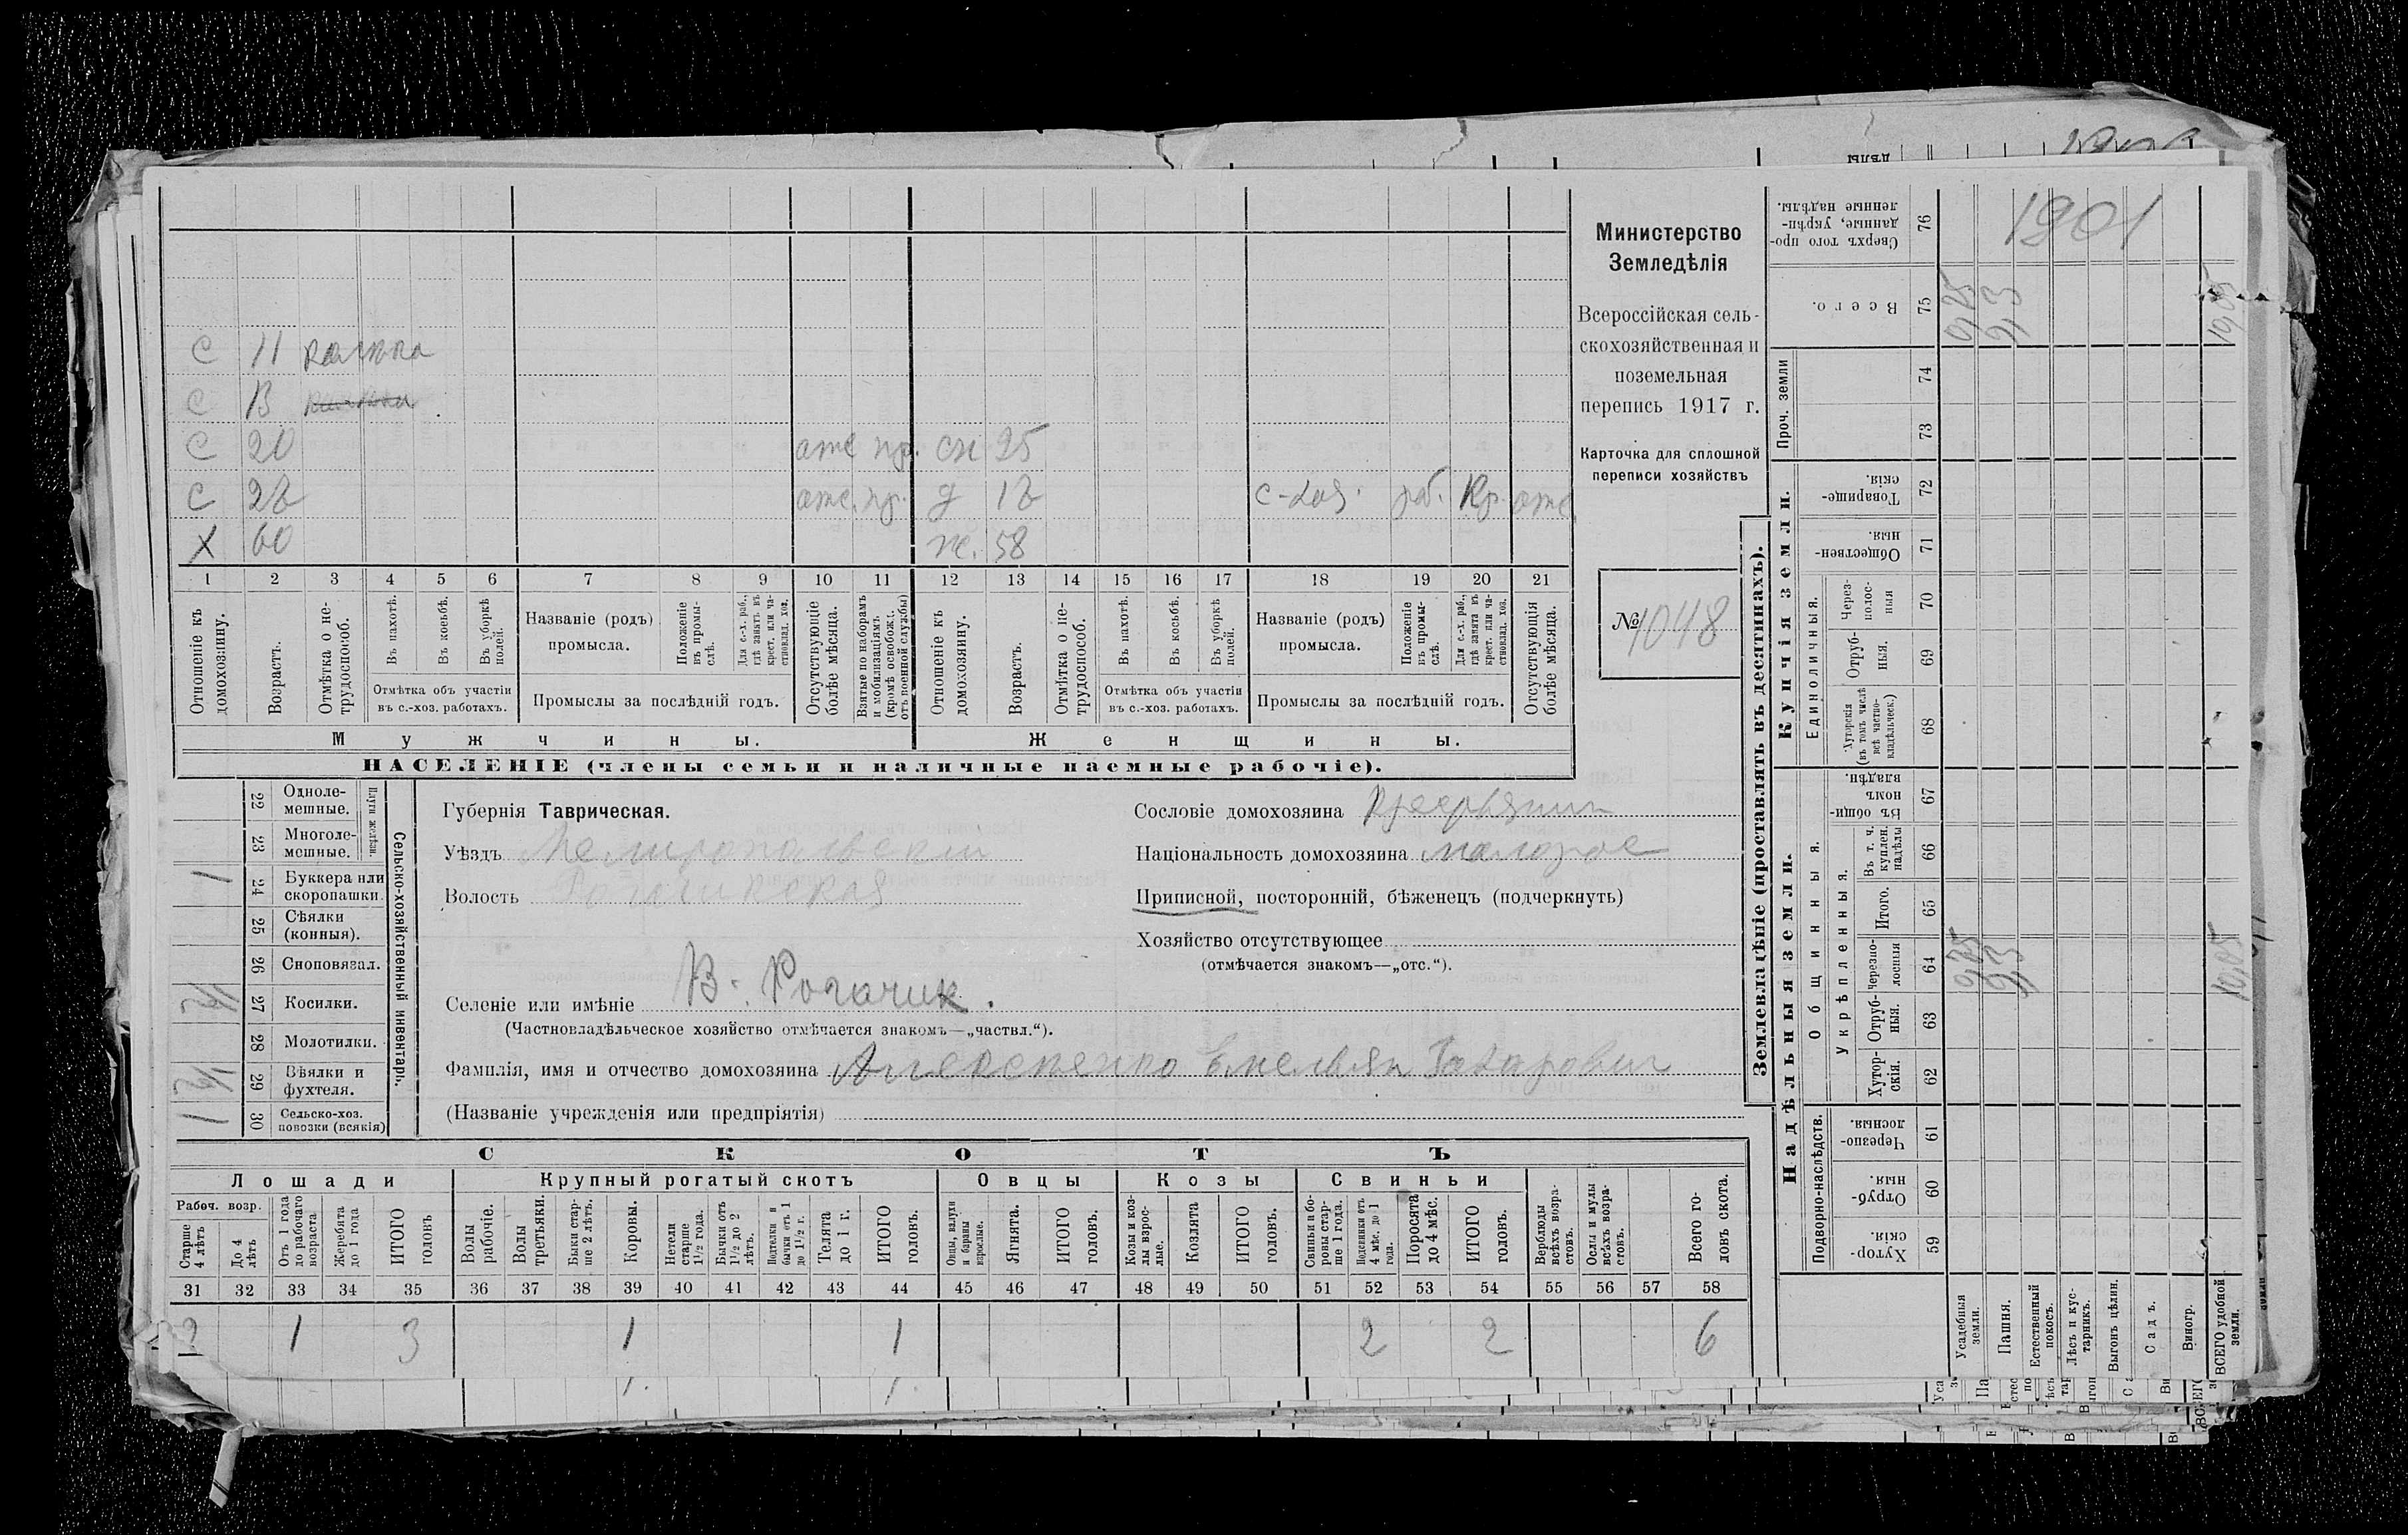 С 11 калека
С 13
С 20 отс пр. сн 25
С 22 отс. пр. д 12 с-хоз. раб. Кр. отс
Х 60 ж. 58
1 2 3 4 5 6 7 8 9 10 11 12 13 14 15 16 17 18 19 20 21
Отношеніе къ домохозяину.
Возрастъ.
Отмѣтка о не-трудоспособ.
Въ пахотѣ.
Въ косьбѣ.
Въ уборкѣ полей.
Отмѣтка объ участіи
въ с.-хоз. работахъ.
Названіе (родъ)
промысла.
Положеніе въ промы-слѣ.
Для с.-х. раб., гдѣ занятъ въ крест. или ча-стновлад. хоз.
Промыслы за послѣдній годъ.
Отсутствующіе болѣе мѣсяца.
Взятые по наборамъ и мобилизаціямъ (кромѣ освобожд. отъ военной службы)
Отношеніе къ домохозяину.
Возрастъ.
Отмѣтка о не-трудоспособ.
Въ пахотѣ.
Въ косьбѣ.
Въ уборкѣ полей.
Отмѣтка объ участіи
въ с.-хоз. работахъ.
Названіе (родъ)
промысла.
Положеніе въ промы-слѣ.
Для с.-х. раб., гдѣ занята въ крест. или ча-стновлад. хоз.
Промыслы за послѣдній годъ.
Отсутствующія болѣе мѣсяца.
Мужчины. Женщины.
НАСЕЛЕНІЕ (члены семьи и наличные наемные рабочіе).
Министерство
Земледѣлія
Всероссійская сель-
скохозяйственная и
поземельная
перепись 1917 г.
Карточка для сплошной
переписи хозяйствъ
№ 1048
Сельско-хозяйственный инвентарь.
Плуги желѣзн.
22 Одноле-мешные.
23 Многоле-мешные.
1 24 Буккера или скоропашки.
25 Сѣялки (конныя).
26 Сноповязал.
1/2 27 Косилки.
28 Молотилки.
1/2 29 Вѣялки и фухтеля.
1 30 Сельско-хоз. повозки (всякія)
Губернія Таврическая.
Уѣздъ Мелитопольскій
Волость Рогачикская
Селеніе или имѣніе В. Рогачик.
(Частновладѣльческое хозяйство отмѣчается знакомъ—„частвл.“).
Фамилія, имя и отчество домохозяина Алексенко Емельян Захарович
(Названіе учрежденія или предпріятія)
Сословіе домохозяина Крестьянин
Національность домохозяина малорос
Приписной, посторонній, бѣженецъ (подчеркнуть)
Хозяйство отсутствующее
(отмѣчается знакомъ—„отс.“).
СКОТЪ
Лошади Крупный рогатый скотъ Овцы Козы Свиньи
Рабоч. возр.
Старше 4 лѣтъ
До 4 лѣтъ
Отъ 1 года до рабочаго возраста
Жеребята до 1 года
ИТОГО головъ
Волы рабочіе.
Волы третьяки.
Быки стар-ше 2 лѣтъ.
Коровы.
Нетели старше 1 1/2 года.
Бычки отъ 1 1/2 до 2 лѣтъ.
Подтелки и бычки отъ 1 до 1 1/2 г.
Телята до 1 г.
ИТОГО головъ.
Овцы, валухи и бараны взрослые.
Ягнята.
ИТОГО головъ.
Козы и коз-лы взрос-лые.
Козлята
ИТОГО головъ.
Свиньи и бо-ровы стар-ше 1 года.
Подсвинки отъ 4 мѣс. до 1 года.
Поросята до 4 мѣс.
ИТОГО головъ.
Верблюды всѣхъ возра-стовъ.
Ослы и мулы всѣхъ возра-стовъ.
Всего го-ловъ скота.
31 32 33 34 35 36 37 38 39 40 41 42 43 44 45 46 47 48 49 50 51 52 53 54 55 56 57 58
2 1 3 1 1 2 2 6
Землевладѣніе (проставлять въ десятинахъ).
1901
Надѣльныя земли.
Купчія земли.
Проч. земли
Подворно-наслѣдств.
Общинныя.
Укрѣпленныя.
Единоличныя.
Хутор-скія. 59
Отруб-ныя. 60
Черезпо-лосныя. 61
Хутор-скія. 62
Отруб-ныя. 63
черезпо-лосныя 64
Итого. 65
Въ т. ч. куплен. надѣлы 66
Въ общин-номъ владѣн. 67
Хуторскія (въ томъ числѣ всѣ частно-владѣльческ.) 68
Отруб-ныя. 69
Через-полос-ныя 70
Обществен-ныя. 71
Товарище-скія. 72
73
74
Всего. 75
Сверхъ того про-данные, укрѣп-ленные надѣлы. 76
Усадебныя земли.
Пашня. 9,3 9,3
Естественный покосъ.
Лѣсъ и кус-тарникъ.
Выгонъ цѣлин.
Садъ.
Виногр.
ВСЕГО удобной земли. 10,05 10,05